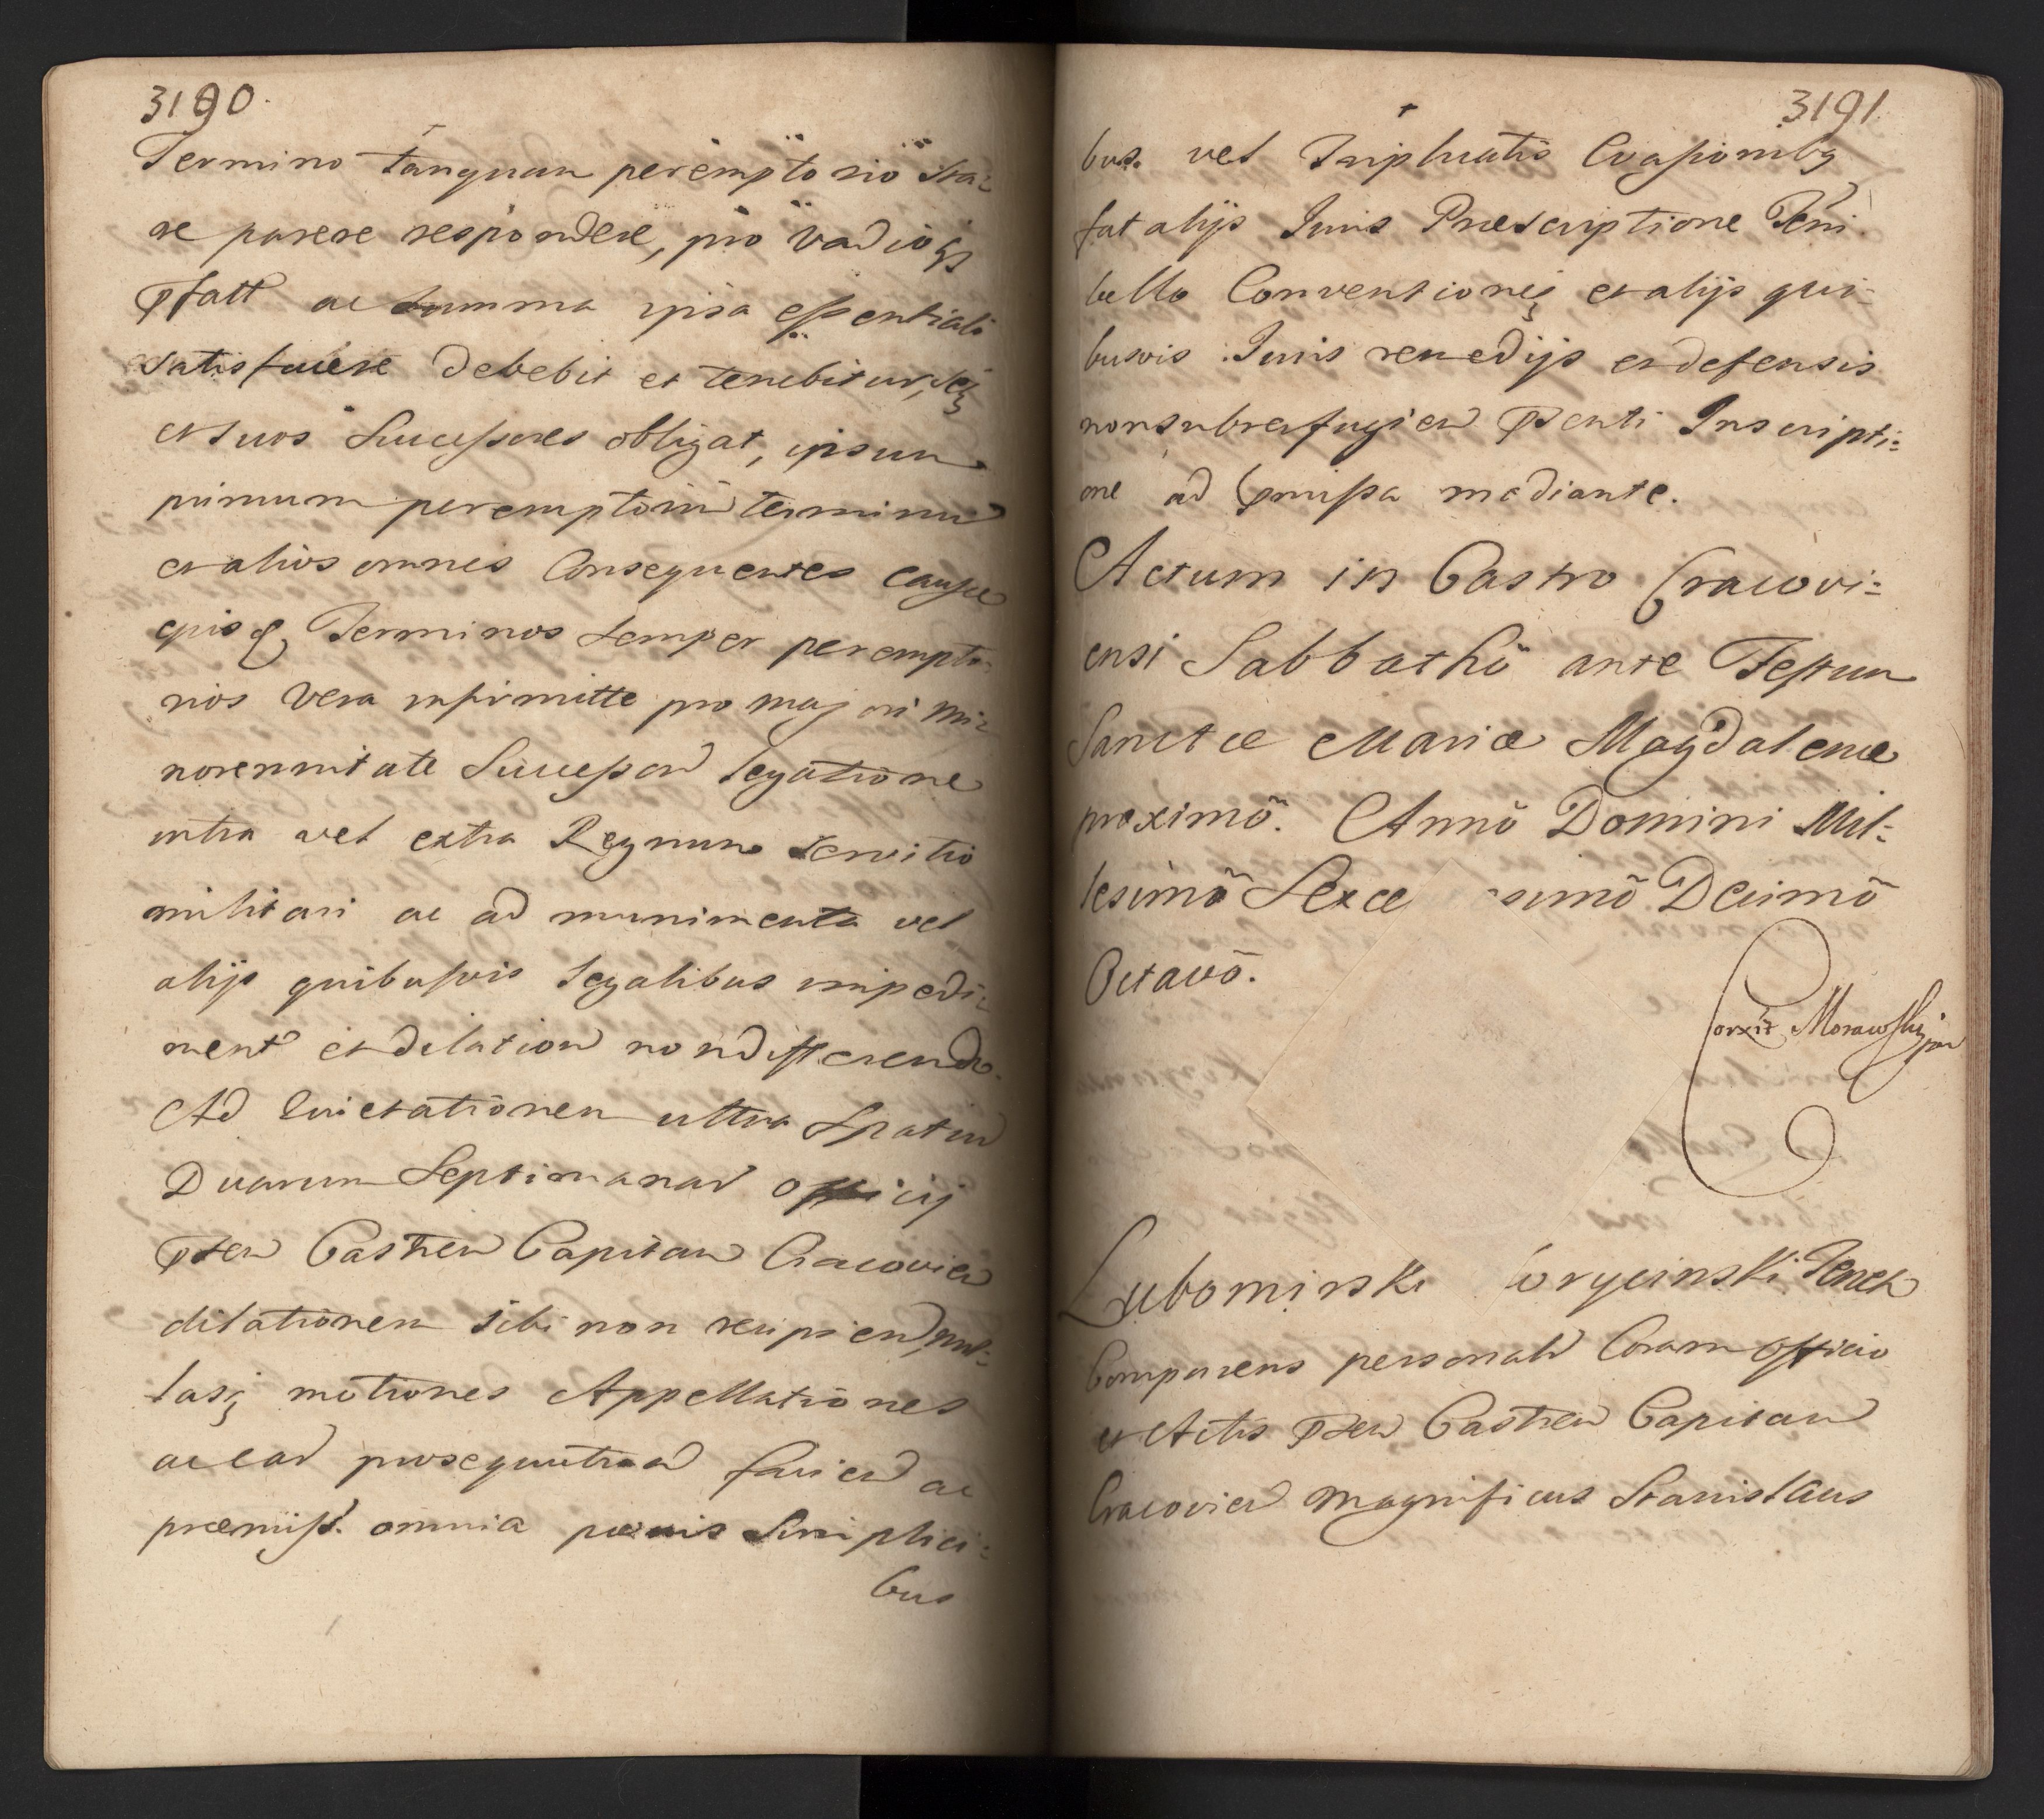 3190.
Termino tanquam peremptorio Sta=
re parere respondere, pro vadiis
Pfatt ac summa ipsa essentiali
satisfacere debebit et tenebitur, seq
et suos Successores obligat, ipsum
primum peremptoriu terminu
et alios omnes Consequentes causae
ejusq Terminos semper perempto=
rios vera infirmitte pro majori mi=
norennitate Successor legatione
intra vel extra Regnum servitio
militari ac ad munimenta vel
alijs quibusvis legalibus impedi=
ment et dilation non differendo.
Ad Quietationem ultra Spatiu
Duarum Septimanar Officij
Pten Castren Capitan Cracovien
dilationem sibi non recipien, nul=
lasq motiones Appellationes
ac ear prosequution facien ac
praemiss. omnia paenis Simplici=
bus
3191.
bus. vel Triplicatis Evasionibq
fatalijs Juris Praescriptione Terri
bello Conventioneq et alijs qui=
busvis Juris remedijs et defensis
non subterfugien Psenti Inscripti=
one ad Pmissa mediante.
Actum in Castro Cracovi=
ensi Sabbathô ante Festum
Sanctae Mariae Magdalenae
proximô. Annô Domini Mil=
lesimô Sexce simô Decimô
Octavô.
Corxit Morawski
Lubomirski Korycinski Tenet
Comparens personalr Coram Officio
et Actis Pten Castren Capitan
Cracovien Magnificus Stanislaus